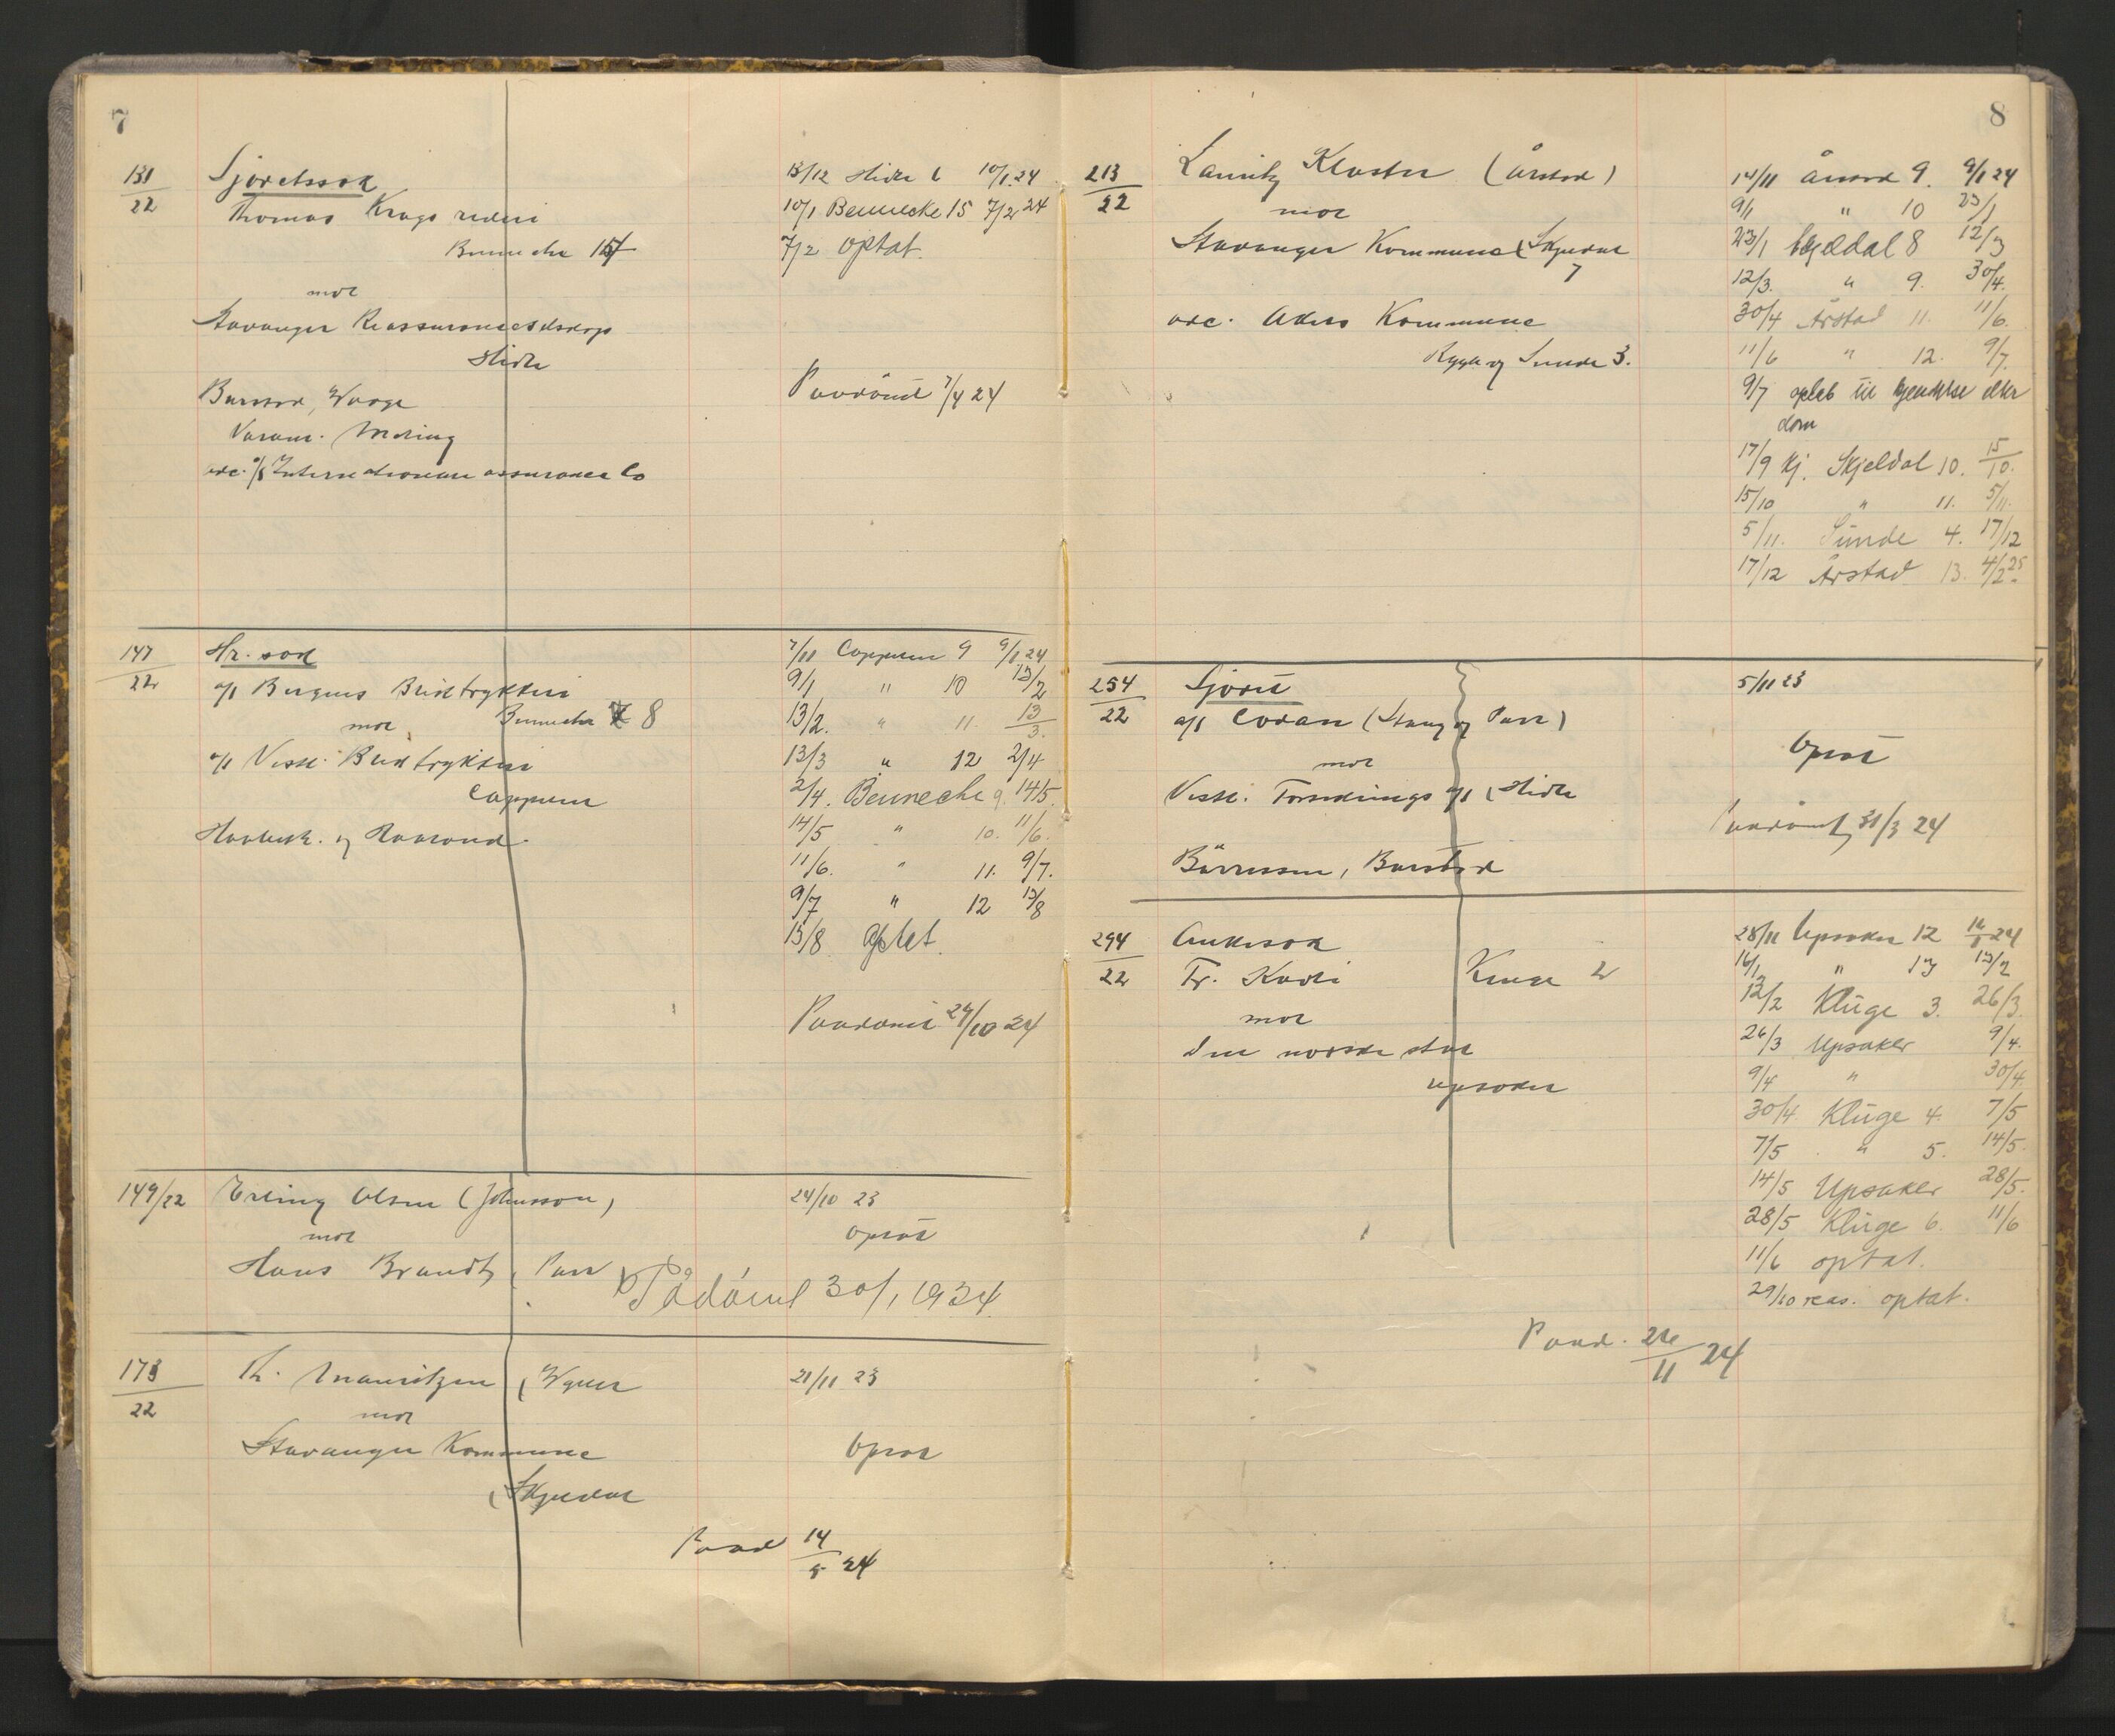 7
131
22
Sjøretssak
Thomas Krags rederi
Bennecke 15
mot
Stavanger Reassuranceselskap
Hidle
Barstad, Waage
Varam. Meling
adc. A/S Internationale assurance Co
13/12 Hidle 6 10/1.24
10/1 Bennecke 15 7/2 24
7/2 optat.
Paadömt 7/4 24
147
22
Hr. sak
A/S Bergens Bliktrykkeri
Bennecke 8
mot
A/S Vestl. Bliktrykkeri
Cappelen
7/11 Cappelen 9 9/1.24
9/1 " 10 13/2
13/2. " 11. 13/3.
13/3 " 12 2/4
2/4. Bennecke 9. 14/5.
14/5 " 10. 11/6.
11/6. " 11. 9/7.
9/7 " 12 13/8
13/8 optat.
Paadömt 24/10 24
149/22
Erling Olsen (Johnsson)
mot
Hans Brandt, Parr
24/10 23
Opsat
Pådömt 30/1 1934.
173
22
Th. Mauritzen
mot
Stavanger Kommune
(Skjeldal
21/11 23
Opsat
Paad 14/5 24
8
213
22
Lauritz Kloster (Årstad)
mot
Stavanger Kommune (Skjeldal
7
adc. Akers Kommune
Rygh og Sunde 3.
14/11 Årstad 9. 9/1 24
9/1 " 10 23/1
23/1 Skjeldal 8 12/3
12/3. " 9. 30/4.
30/4 Årstad 11. 11/6.
11/6 " 12. 9/7.
9/7 optat til kjendelse eller
dom
17/9 kj. Skjeldal 10. 15/10.
15/10 " 11. 5/11.
5/11. Sunde 4. 17/12
17/12 Årstad 13. 4/2 25.
254
22
Sjöret
A/S Codan (Stang og Parr)
mot
Vestl. Forsikrings A/S (Hidle
Börresen, Barstad
5/11 23
Opsat
Paadömt 31/3 24
294
22
Ankesak
Fr. Kadi Kluge 2
mot
den norske stat
Upsaker
28/11 Upsaker 12 16/1 24
16/1 " 13 13/2
13/2 Kluge 3. 26/3.
26/3 Upsaker 9/4.
9/4 " 30/4.
30/4 Kluge 4. 7/5
7/5 " 5. 14/5.
14/5 Upsaker 28/5.
28/5 Kluge 6. 11/6
11/6 optat.
29/10 reas. optat.
Paad. 26/11 24